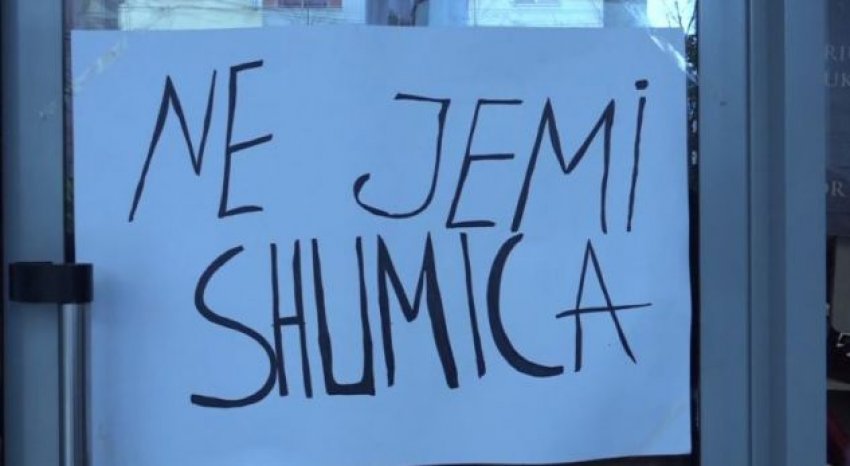 NE JEMi
SHUMICA